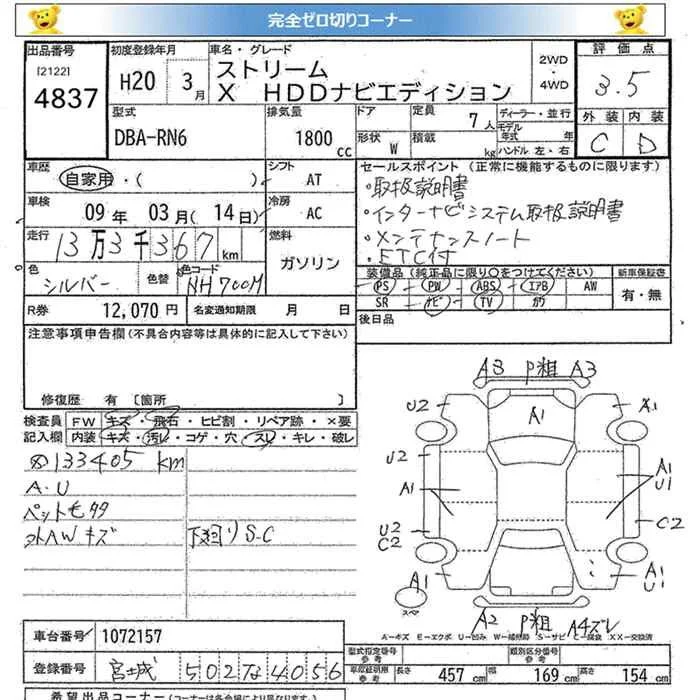 完全ゼロ切りコーナー
出品番号 初度登録年月 車名・グレード 2WD・4WD 評価点
[2122] 4837 H20 3月 ストリーム
X HDDナビエディション 3.5
型式 排気量 ドア 定員 7人 ディーラー・並行 外装 内装
DBA-RN6 1800cc 形状 W 積載 kg モデル年式 年 C D
ハンドル 左・右
車歴 自家用・( ) シフト AT セールスポイント (正常に機能するものに限ります)
・取扱説明書
車検 09年 03月(14日) 冷房 AC ・インターナビシステム取扱説明書
走行 13万3千367km 燃料 ガソリン ・メンテナンスノート
・ETC付
色 シルバー 色替 色コード NH700M 装備品 (純品に限り○をつけてください) 新車保証書
PS PW ABS エアB AW 有・無
SR ナビ TV カワ
R券 12,070円 名変通知期限 月 日 後日品
注意事項申告欄(不具合内容等は具体的に記入して下さい)
修復歴 有 [箇所 ]
検査員記入欄 FW キズ・飛石・ヒビ割・リペア跡・×要
内装 キズ・汚レ・コゲ・穴・スレ・キレ・破レ
133405 km
A・U
ペットモタタ
外AWキズ 下廻りS・C
A3 P粗 A3
U2 A1 A1
U2 A1
A1 U1
U2 C2
C2
A1 A1
U1
スペア
A2 P粗 A4ズレ
A-キズ E-エクボ U-凹み W-補修跡 S-サビ C-腐食 XX-交換済
車台番号 1072157 型式指定番号 参考 類別区分番号 参考
登録番号 宮城 502 な 4056 車庫証明用参考 長さ 457cm 幅 169cm 高さ 154cm
希望出品コーナー